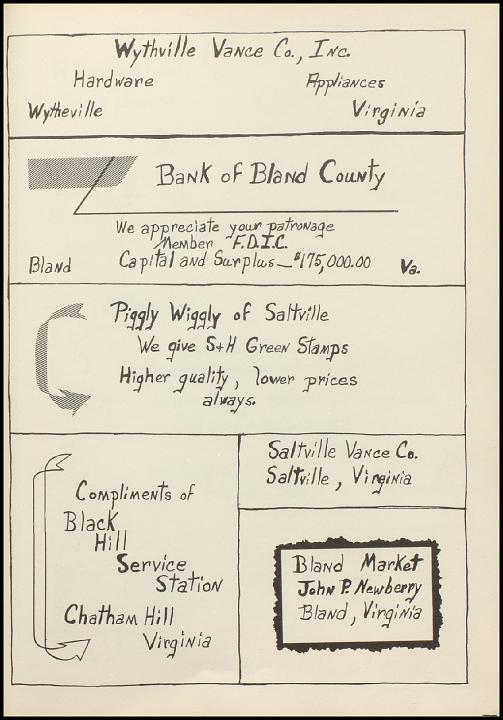 Wythville Vance Co., Inc.
Hardware Appliances
Wytheville Virginia
Bank of Bland County
We appreciate your patronage
Member F.D.I.C.
Bland Capital and Surplus — $175,000.00 Va.
Piggly Wiggly of Saltville
We give S+H Green Stamps
Higher quality, lower prices
always.
Compliments of
Black
Hill
Service
Station
Chatham Hill
Virginia
Saltville Vance Co.
Saltville, Virginia
Bland Market
John P. Newberry
Bland, Virginia